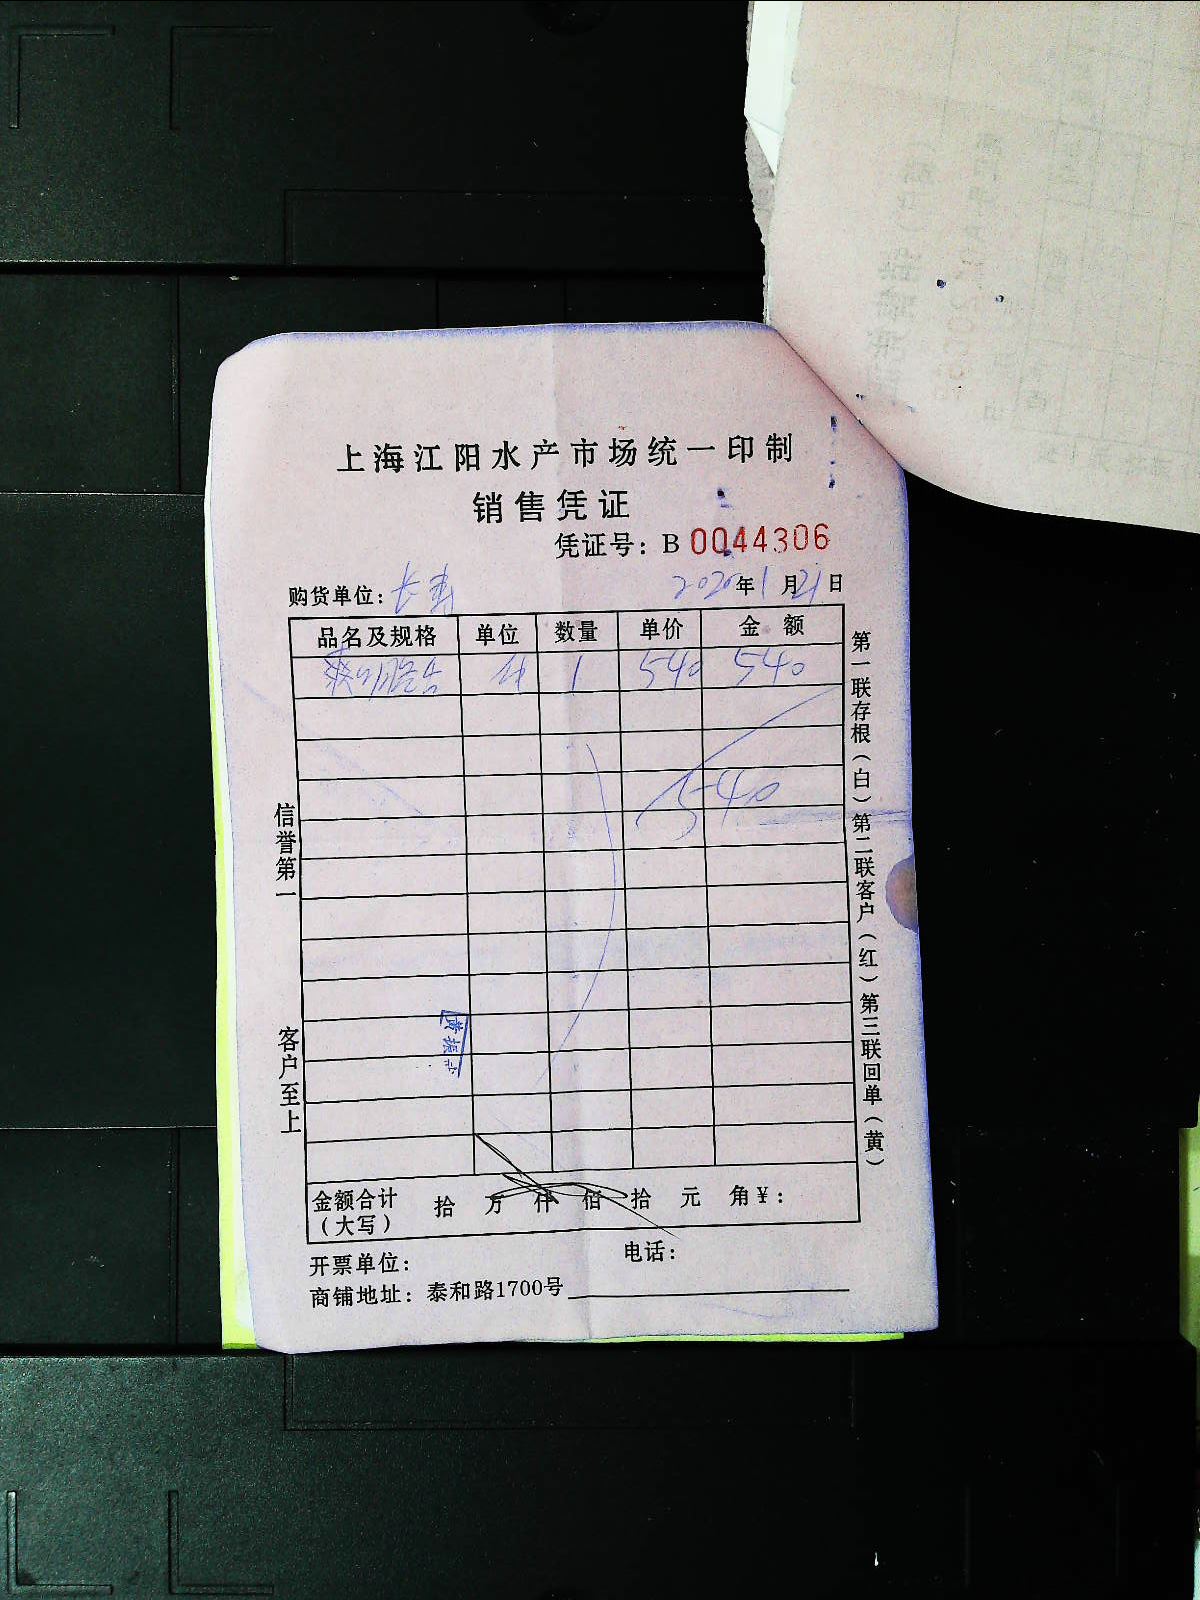 上海江阳水产市场统一印制
销售凭证
凭证号：B 0044306
购货单位：
2020年1月21日
品名及规格 单位 数量 单价 金额
件 1 540 540
540
信誉第一
客户至上
第一联存根（白）第二联客户（红）第三联回单（黄）
金额合计（大写） 拾 万 仟 佰 拾 元 角¥：
开票单位： 电话：
商铺地址：泰和路1700号